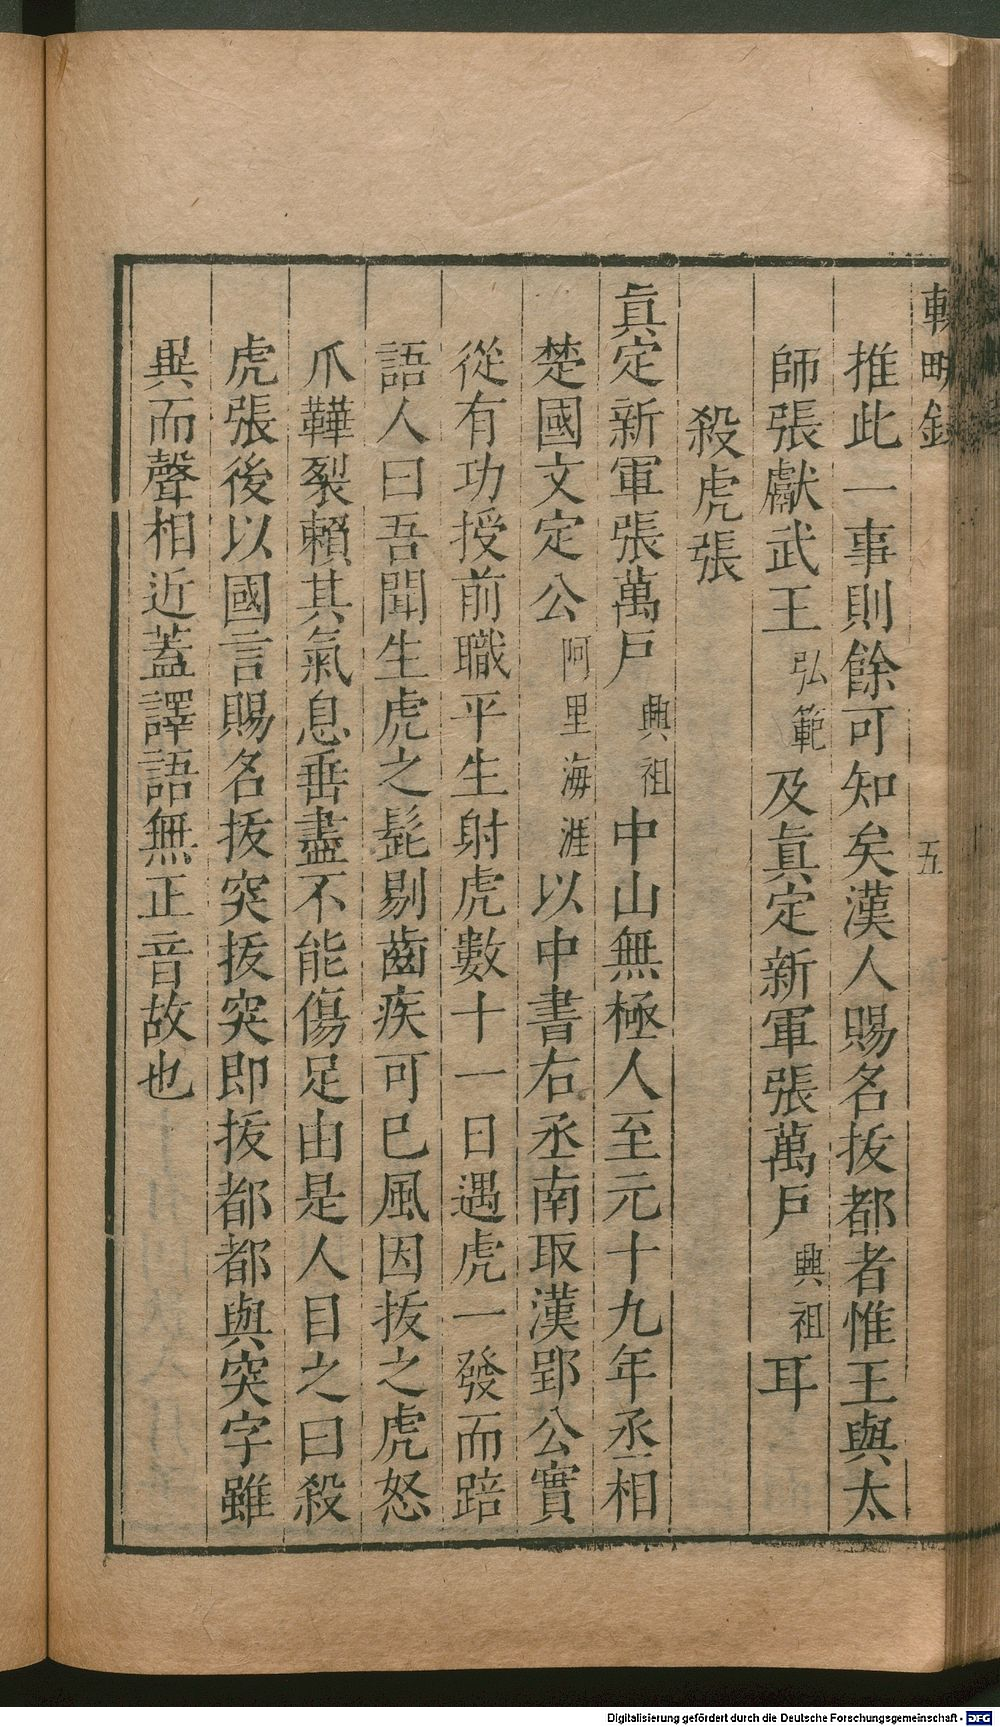 輟畊錄 五
推此一事則餘可知矣漢人賜名抜都者惟王與太
師張獻武王弘範及眞定新軍張萬戸興祖耳
殺虎張
眞定新軍張萬戸興祖中山無極人至元十九年丞相
楚國文定公阿里海涯以中書右丞南取漢郢公實
從有功授前職平生射虎數十一日遇虎一發而踣
語人曰吾聞生虎之髭剔齒疾可已風因抜之虎怒
爪鞾裂賴其氣息垂盡不能傷足由是人目之曰殺
虎張後以國言賜名抜突抜突即抜都都與突字雖
異而聲相近蓋譯語無正音故也
Digitalisierung gefördert durch die Deutsche Forschungsgemeinschaft - DFG